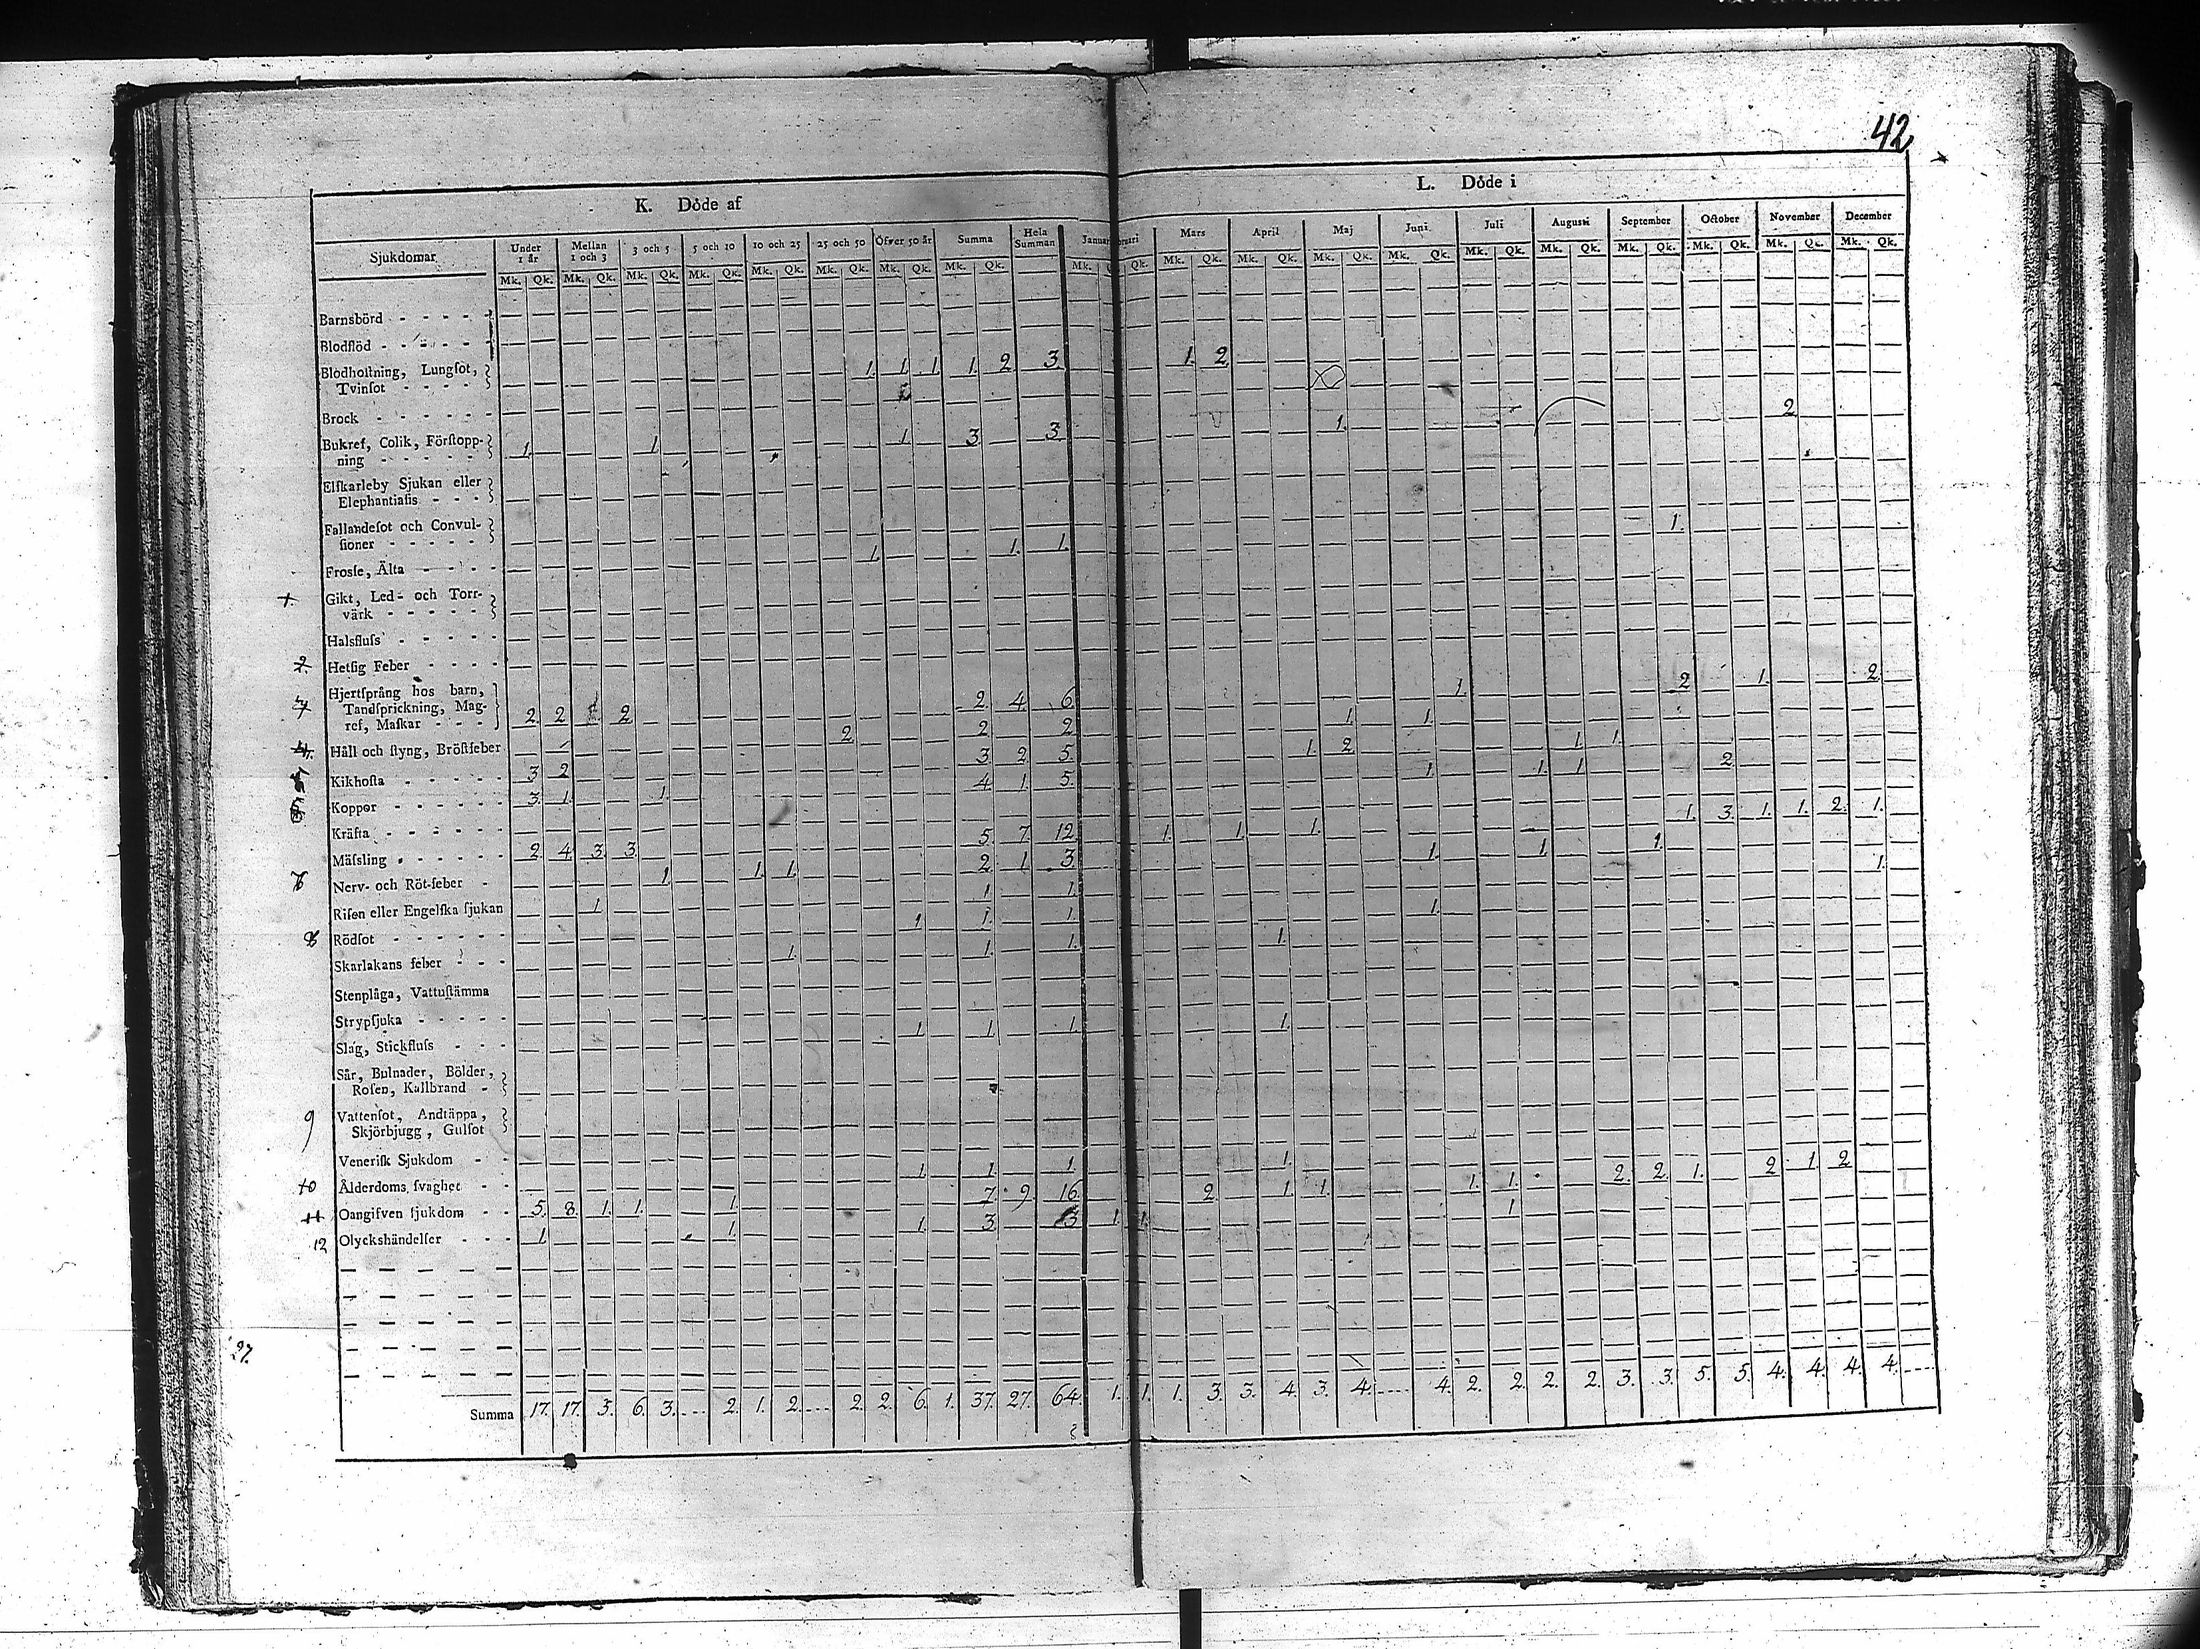 42
K. Döde af
L. Döde i
Sjukdomar
Under 1 år
Mellan 1 och 3
3 och 5
5 och 10
10 och 25
25 och 50
Öfver 50 år
Summa
Hela Summan
Januar
bruari
Mars
April
Maj
Juni
Juli
Augusti
September
October
November
December
Mk. Qk. Mk. Qk. Mk. Qk. Mk. Qk. Mk. Qk. Mk. Qk. Mk. Qk. Mk. Qk. Mk. Qk. Mk. Qk. Mk. Qk. Mk. Qk. Mk. Qk. Mk. Qk. Mk. Qk. Mk. Qk. Mk. Qk. Mk. Qk. Mk. Qk.
Barnsbörd
Blodflöd
Blodhoſtning, Lungſot, 1. 1. 1. 1. 2. 3. 1. 2.
Tvinſot
Brock
Bukref, Colik, Förſtopp-
ning 1. 1. 1. 3. 3. 1. 2.
Elſkarleby Sjukan eller
Elephantiaſis
Fallandeſot och Convul-
ſioner 1. 1. 1. 1.
Froſſe, Älta
Gikt, Led- och Torr-
värk
Halsfluſs
2. Hetſig Feber
Hjertſprång hos barn,
Tandſprickning, Mag-
ref, Maſkar 2. 2. 2. 2. 4. 6. 1. 2. 1. 2.
4. Håll och ſtyng, Bröſtfeber 2. 2. 2. 1. 1.
Kikhoſta 3. 2. 3. 2. 5. 1. 2. 1. 1.
Koppor 3. 1. 1. 4. 1. 5. 1. 1. 1. 2.
Kräfta
Mäſsling 2. 4. 3. 3. 5. 7. 12. 1. 1. 1. 1. 3. 1. 1. 2. 1.
Nerv- och Röt-feber 1. 1. 1. 2. 1. 3. 1. 1. 1.
Riſen eller Engelſka ſjukan 1. 1. 1. 1.
8 Rödſot 1. 1. 1. 1.
Skarlakans feber 1. 1. 1. 1.
Stenplåga, Vattuſtämma
Strypſjuka
Slag, Stickfluſs 1. 1. 1. 1.
Sår, Bulnader, Bölder,
Roſen, Kallbrand
9 Vattenſot, Andtäppa,
Skjörbjugg, Gulſot
Veneriſk Sjukdom
10 Ålderdoms ſvaghet 1. 1. 1. 1.
11 Oangifven ſjukdom 5. 8. 1. 1. 1. 7. 9. 16. 2. 1. 1. 1. 1. 2. 2. 1. 2. 1. 2.
12 Olyckshändelſer 1. 1. 1. 3. 3. 1. 1. 1.
27.
Summa 17. 17. 5. 6. 3. 2. 1. 2. 2. 2. 6. 1. 37. 27. 64. 1. 1. 1. 3. 3. 4. 3. 4. 4. 2. 2. 2. 2. 3. 3. 5. 5. 4. 4. 4. 4.